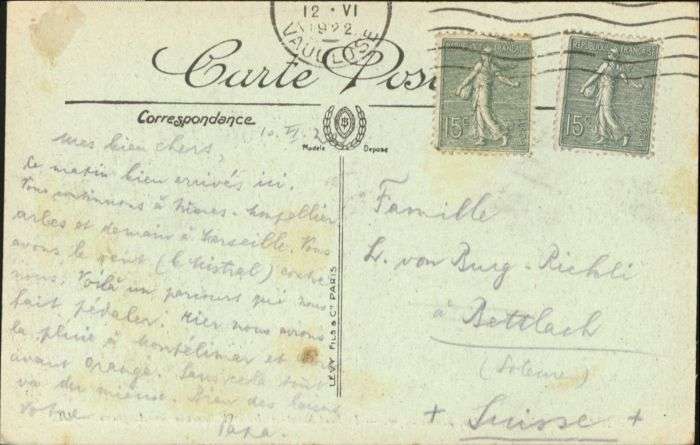 12 · VI
1922
VAUCLUSE
Carte Pos
REPUBLIQUE FRANÇAISE
15c
15c
Correspondance
Modèle Déposé
10. VI. 2
Mes bien chers,
Ce matin bien arrivés ici.
continuons à Nîmes - Montpellier
Arles et demain à Marseille. Nous
avons le vent (le Mistral) contre
nous. Voilà un parcours qui nous
fait pédaler. Hier nous avons
la pluie à Montélimar et
avant Orange. Sans cela tout
va du mieux. Bien des
votre
Papa.
LÉVY FILS & Cie PARIS
Famille
L. von Burg-Richli
à Bettlach
(Soleure)
+ Suisse +